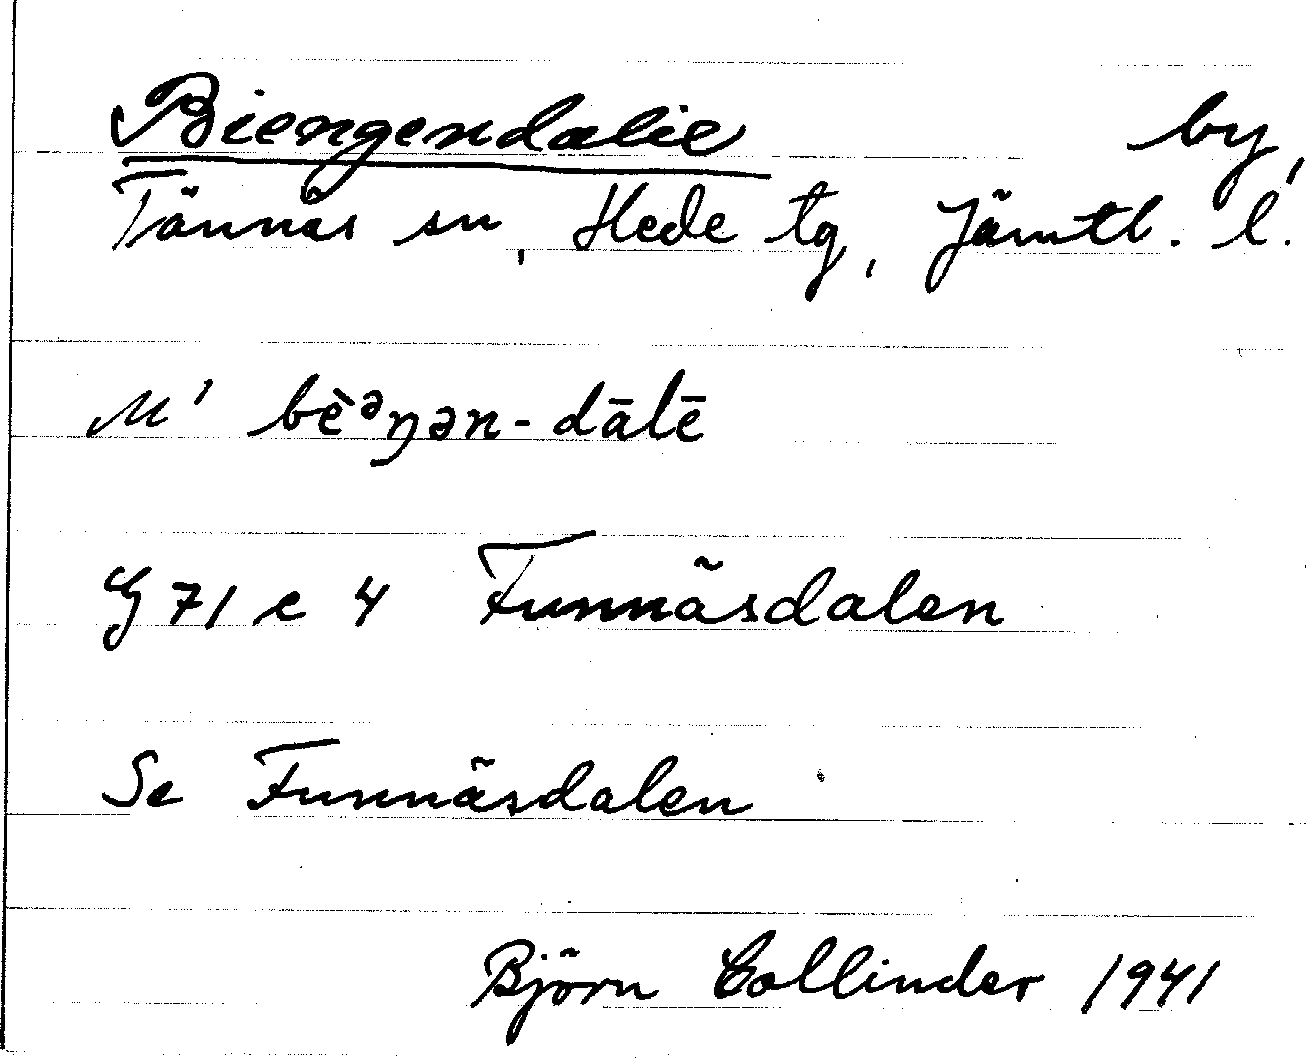 Biengendalie by,
Tännäs sn, Hede tg, Jämtl. l.
M' bè̄ᵊŋən-dālē
G 71 c 4 Funnäsdalen
Se Funnäsdalen
Björn Collinder 1941